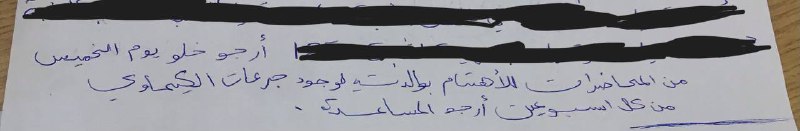 أرجو خلو يوم الخميس
من المحاضرات للأهتمام بوالدتي لوجود جرعات الكيماوي
من كل اسبوعين أرجو المساعدة .